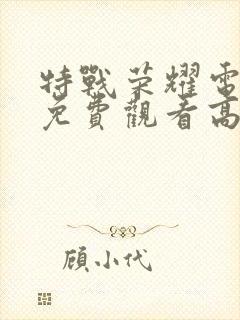 特戰荣耀電
免費觀看高
顾小代